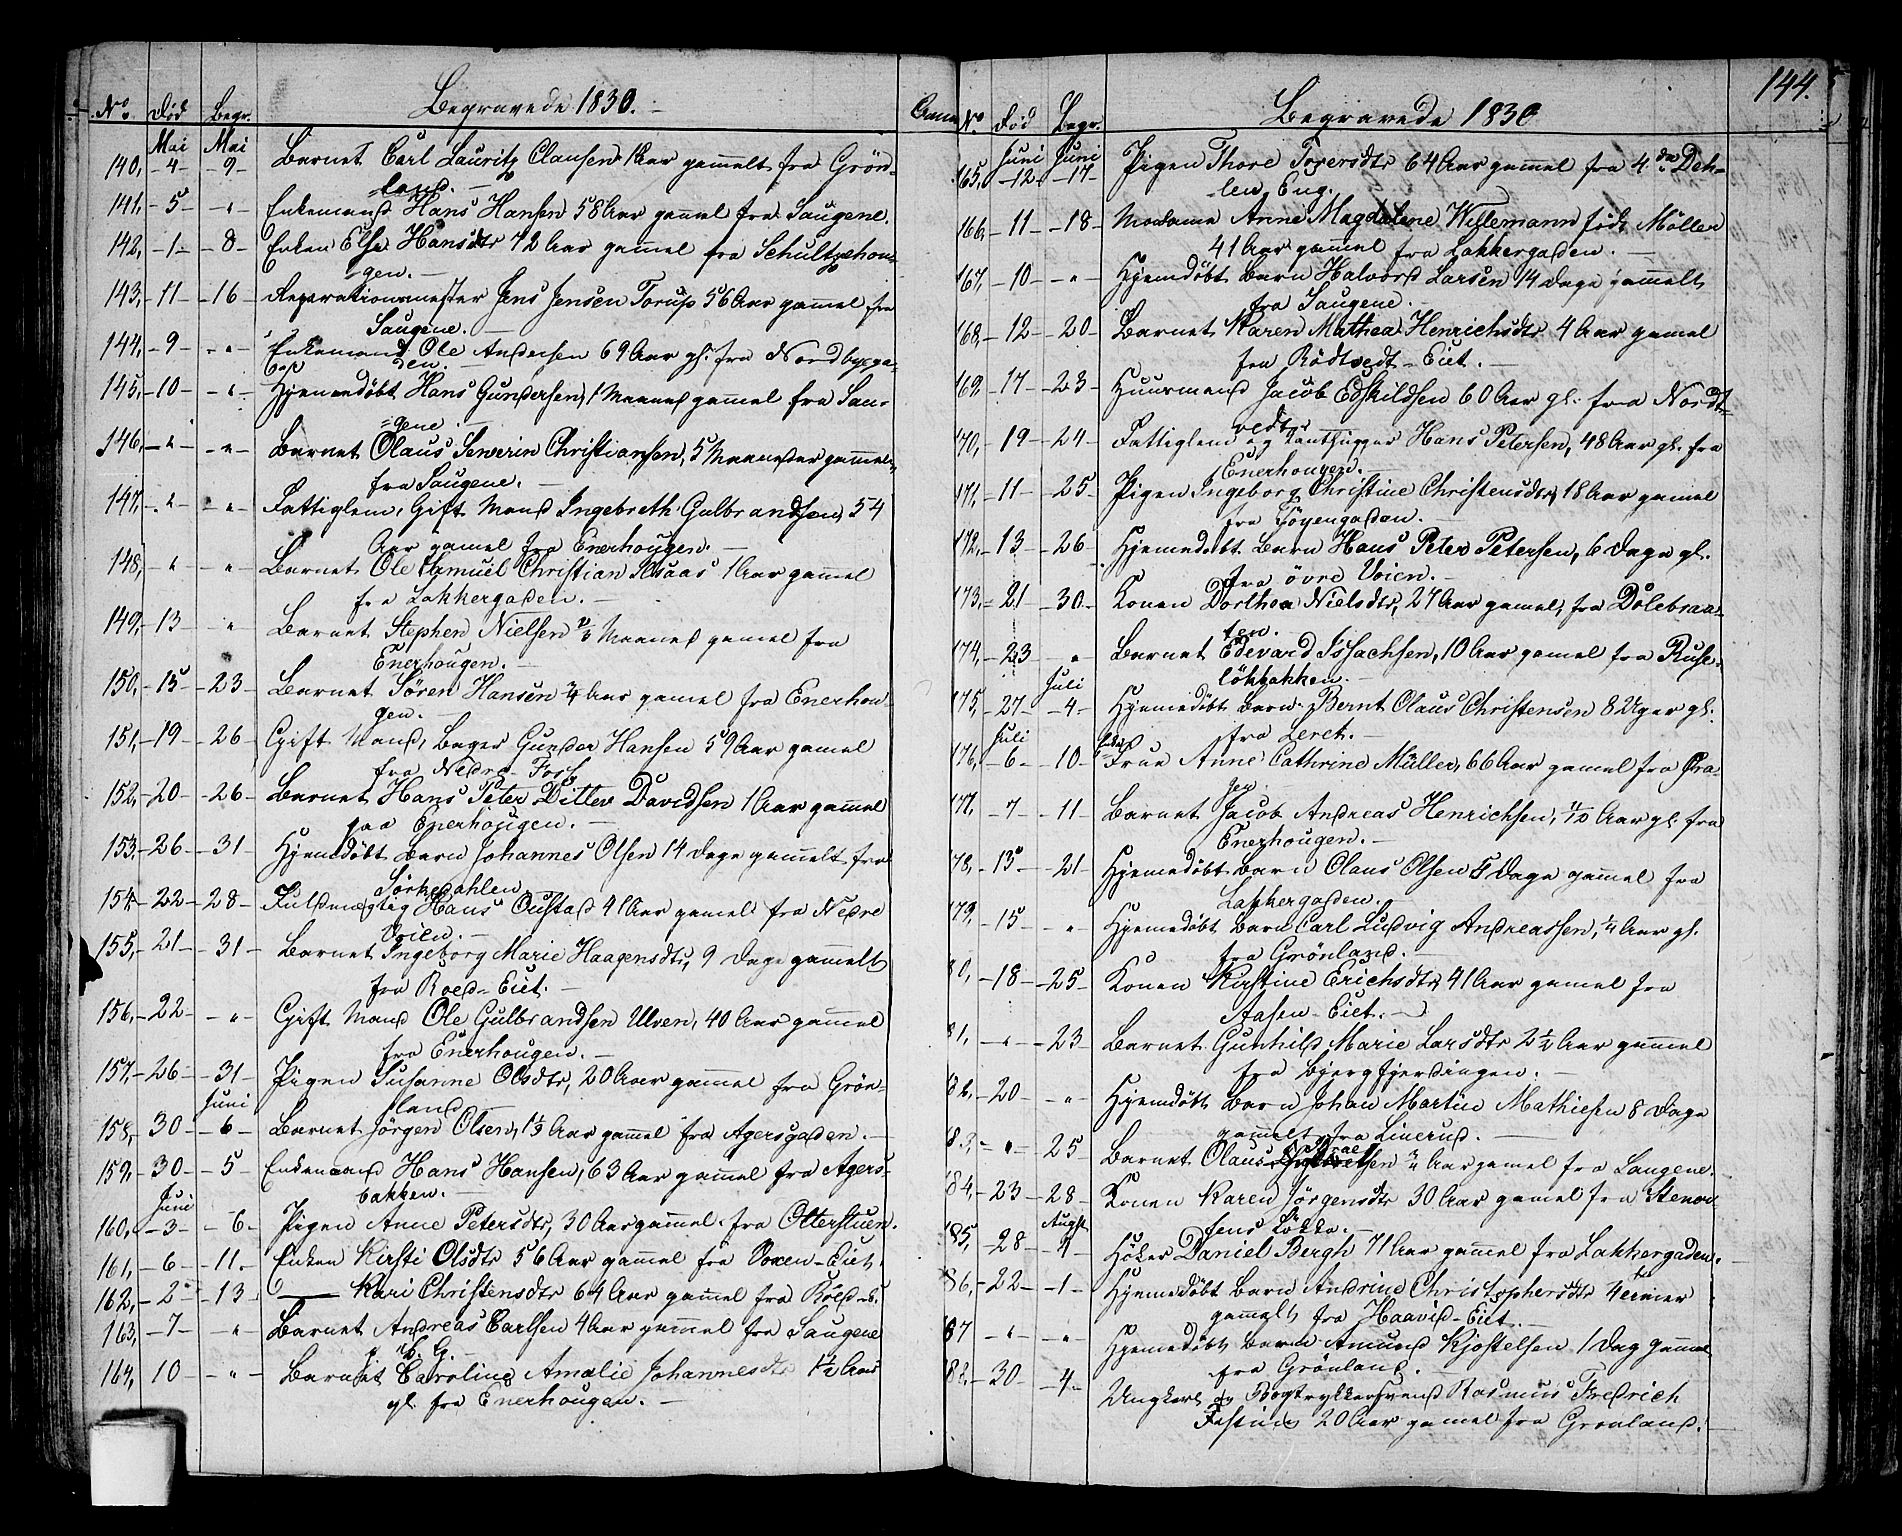 No. Død Begr. Begravede 1830. Anm
Mai Mai
140, -4- -9- Barnet Carl Lauritz Clausen 1 Aar gamelt fra Grøn-
land. -
141, -5- -"- Enkemand Hans Hansen 58 Aar gamel fra Saugene.
142, -1- -8- Enken Else Hansdtr 72 Aar gamel fra Schultzehou-
gen. -
143, -11- -16- Reparationsmester Jens Jensen Torup 56 Aar gamel fra
Saugene. -
144, -9- -"- Enkemand Ole Andersen 69 Aar gl. fra Nordbyega-
den. -
145, -10- -"- Hjemedøbt Hans Gundersen, 1 Maaned gamel fra Sau-
gene. -
146, -"- -"- Barnet Olaus Severin Christiansen, 5 Maaneder gammel,
fra Saugene. -
147, -"- -"- Fattiglem, Gift Mand Ingebreth Gulbrandsen, 54
Aar gamel fra Enerhougen. -
148, -"- -"- Barnet Ole Samuel Christian 1 Aar gammel
fra Lakkergaden. -
149, -13- " Barnet Stephen Nielsen Maaned gamel fra
Enerhougen. -
150, -15- -23- Barnet Søren Hansen 3/4 Aar gamel fra Enerhou-
gen. -
151, -19- -26- Gift Mand, Bager Gunder Hansen 59 Aar gamel
fra Nedre Foss
152, -20- -26- Barnet Hans Peter Ditlev Davidsen 1 Aar gammel
paa Enerhougen. -
153, -26- -31- Hjemedøbt Barn Johannes Olsen 14 Dage gamelt fra
Sørkedahlen.
154, -22- -28- Fuldmægtig Hans Oustad 41 Aar gamel fra Nedre
Voien. -
155, -21- -31- Barnet Ingeborg Marie Haagensdtr, 9 Dage gamelt
fra Roed-Eiet. -
156, -22- -"- Gift Mand Ole Gulbrandsen Ulven, 40 Aar gammel
fra Enerhougen. -
157, -26- -31- Pigen Susanne Olsdtr, 20 Aar gammel fra Grøn-
Juni land
158, 30- -6- Barnet Jørgen Olsen, 1 1/3 Aar gammel fra Agersgaden. -
159, -30- -5- Enkemand Hans Hansen, 63 Aar gammel fra Agers-
Juni bakken. -
160, -3- -6- Pigen Anne Petersdtr, 30 Aar gammel fra Otterstuen.
161, -6- -11- Enken Kirsti Olsdtr 56 Aar gammel fra Voxen-Eiet.
162, -2- -13- Kari Christensdtr 64 Aar gammel fra Roed-E.
163, -7- -"- Barnet Andreas Carlsen 4 Aar gammel fra Saugene
164, 10 -"- Barnet Caroline Amalie Johannesdtr 1 1/2 Aar
gl. fra Enerhougen. -
144.
No. Død Begr. Begravede 1830
Juni Juni
165, -12- -17- Pigen Thore Torersdtr 64 Aar gammel fra 4de Deh-
len Eng.
166, -11- -18- Madame Anne Magdalene Willemann født Møller
41 Aar gammel fra Lakkergaden. -
167, -10- -"- Hjemedøbt Barn Halvord Larsen 14 Dage gamelt
fra Saugene. -
168, -12- -20- Barnet Karen Mathea Henrichsdtr 4 Aar gamel
fra Rödtvedt-Eiet. -
169, -17- -23- Huusmand Jacob Edskildsen 60 Aar gl. fra Nordt-
vedt
170, -19- -24- Fattiglem og Hans Petersen, 48 Aar gl. fra
Enerhougen. -
171, -11- -25- Pigen Ingeborg Christine Christensdtr, 18 Aar gamel
fra Töyengaden. -
172, -13- -26- Hjemedøbt Barn Hans Peter Petersen, 6 Dage gl.
fra övre Voien. -
173, -21- -30- Konen Dorthea Nielsdtr, 27 Aar gamel, fra Dölebraa-
ten. -
174, -23 " Barnet Edevard Issachsen, 10 Aar gamel fra Ruse-
Juli lökbakken. -
175, -27- -4- Hjemedøbt Barn Bernt Olaus Christensen 8 Uger gl.
Juli fra Lerch. -
176, -6- -10- Frue Anne Cathrine Müller, 66 Aar gamel fra
177, -7- -11- Barnet Jacob Andreas Henrichsen, Aar gl. fra
Enerhougen. -
178, -13- -21- Hjemedøbt Barn Olaus Olsen 5 Dage gammel fra
Lakkergaden. -
179, -15- " Hjemedøbt Barn Carl Ludvig Andreassen, 1/4 Aar gl.
fra Grönland. -
80, -18- -25- Konen Kirstine Erichsdtr 41 Aar gamel fra
Aasen-Eiet. -
81, -"- -23- Barnet Gunhild Marie Larsdtr 2 1/2 Aar gammel
fra Bjergfjerdingen. -
82, -20- " Hjemdøbt Barn Johan Martin Mathiesen 8 Dage
gamelt fra Linerud. -
83, -"- 25- Barnet Olaus 3/4 Aar gamel fra Saugene.
84, -23- -28- Konen Karen Jörgensdtr 30 Aar gamel fra Stener-
Augst sens Lökke. -
85, -28- -4- Höker Daniel Bergh 71 Aar gammel fra Lakkergaden.
86, -22- -1- Hjemedøbt Barn Andrine Christophersdtr 4
gamelt fra Haavid-Eiet. -
87 -"- -"- Hjemedøbt Barn Amund Kjostelsen 1 Dag gammel
fra Grönland.
88, -30- -4- Ungkarl og Bogtrykkersvend Rasmus Fredrich
20 Aar gamel fra Grönland.